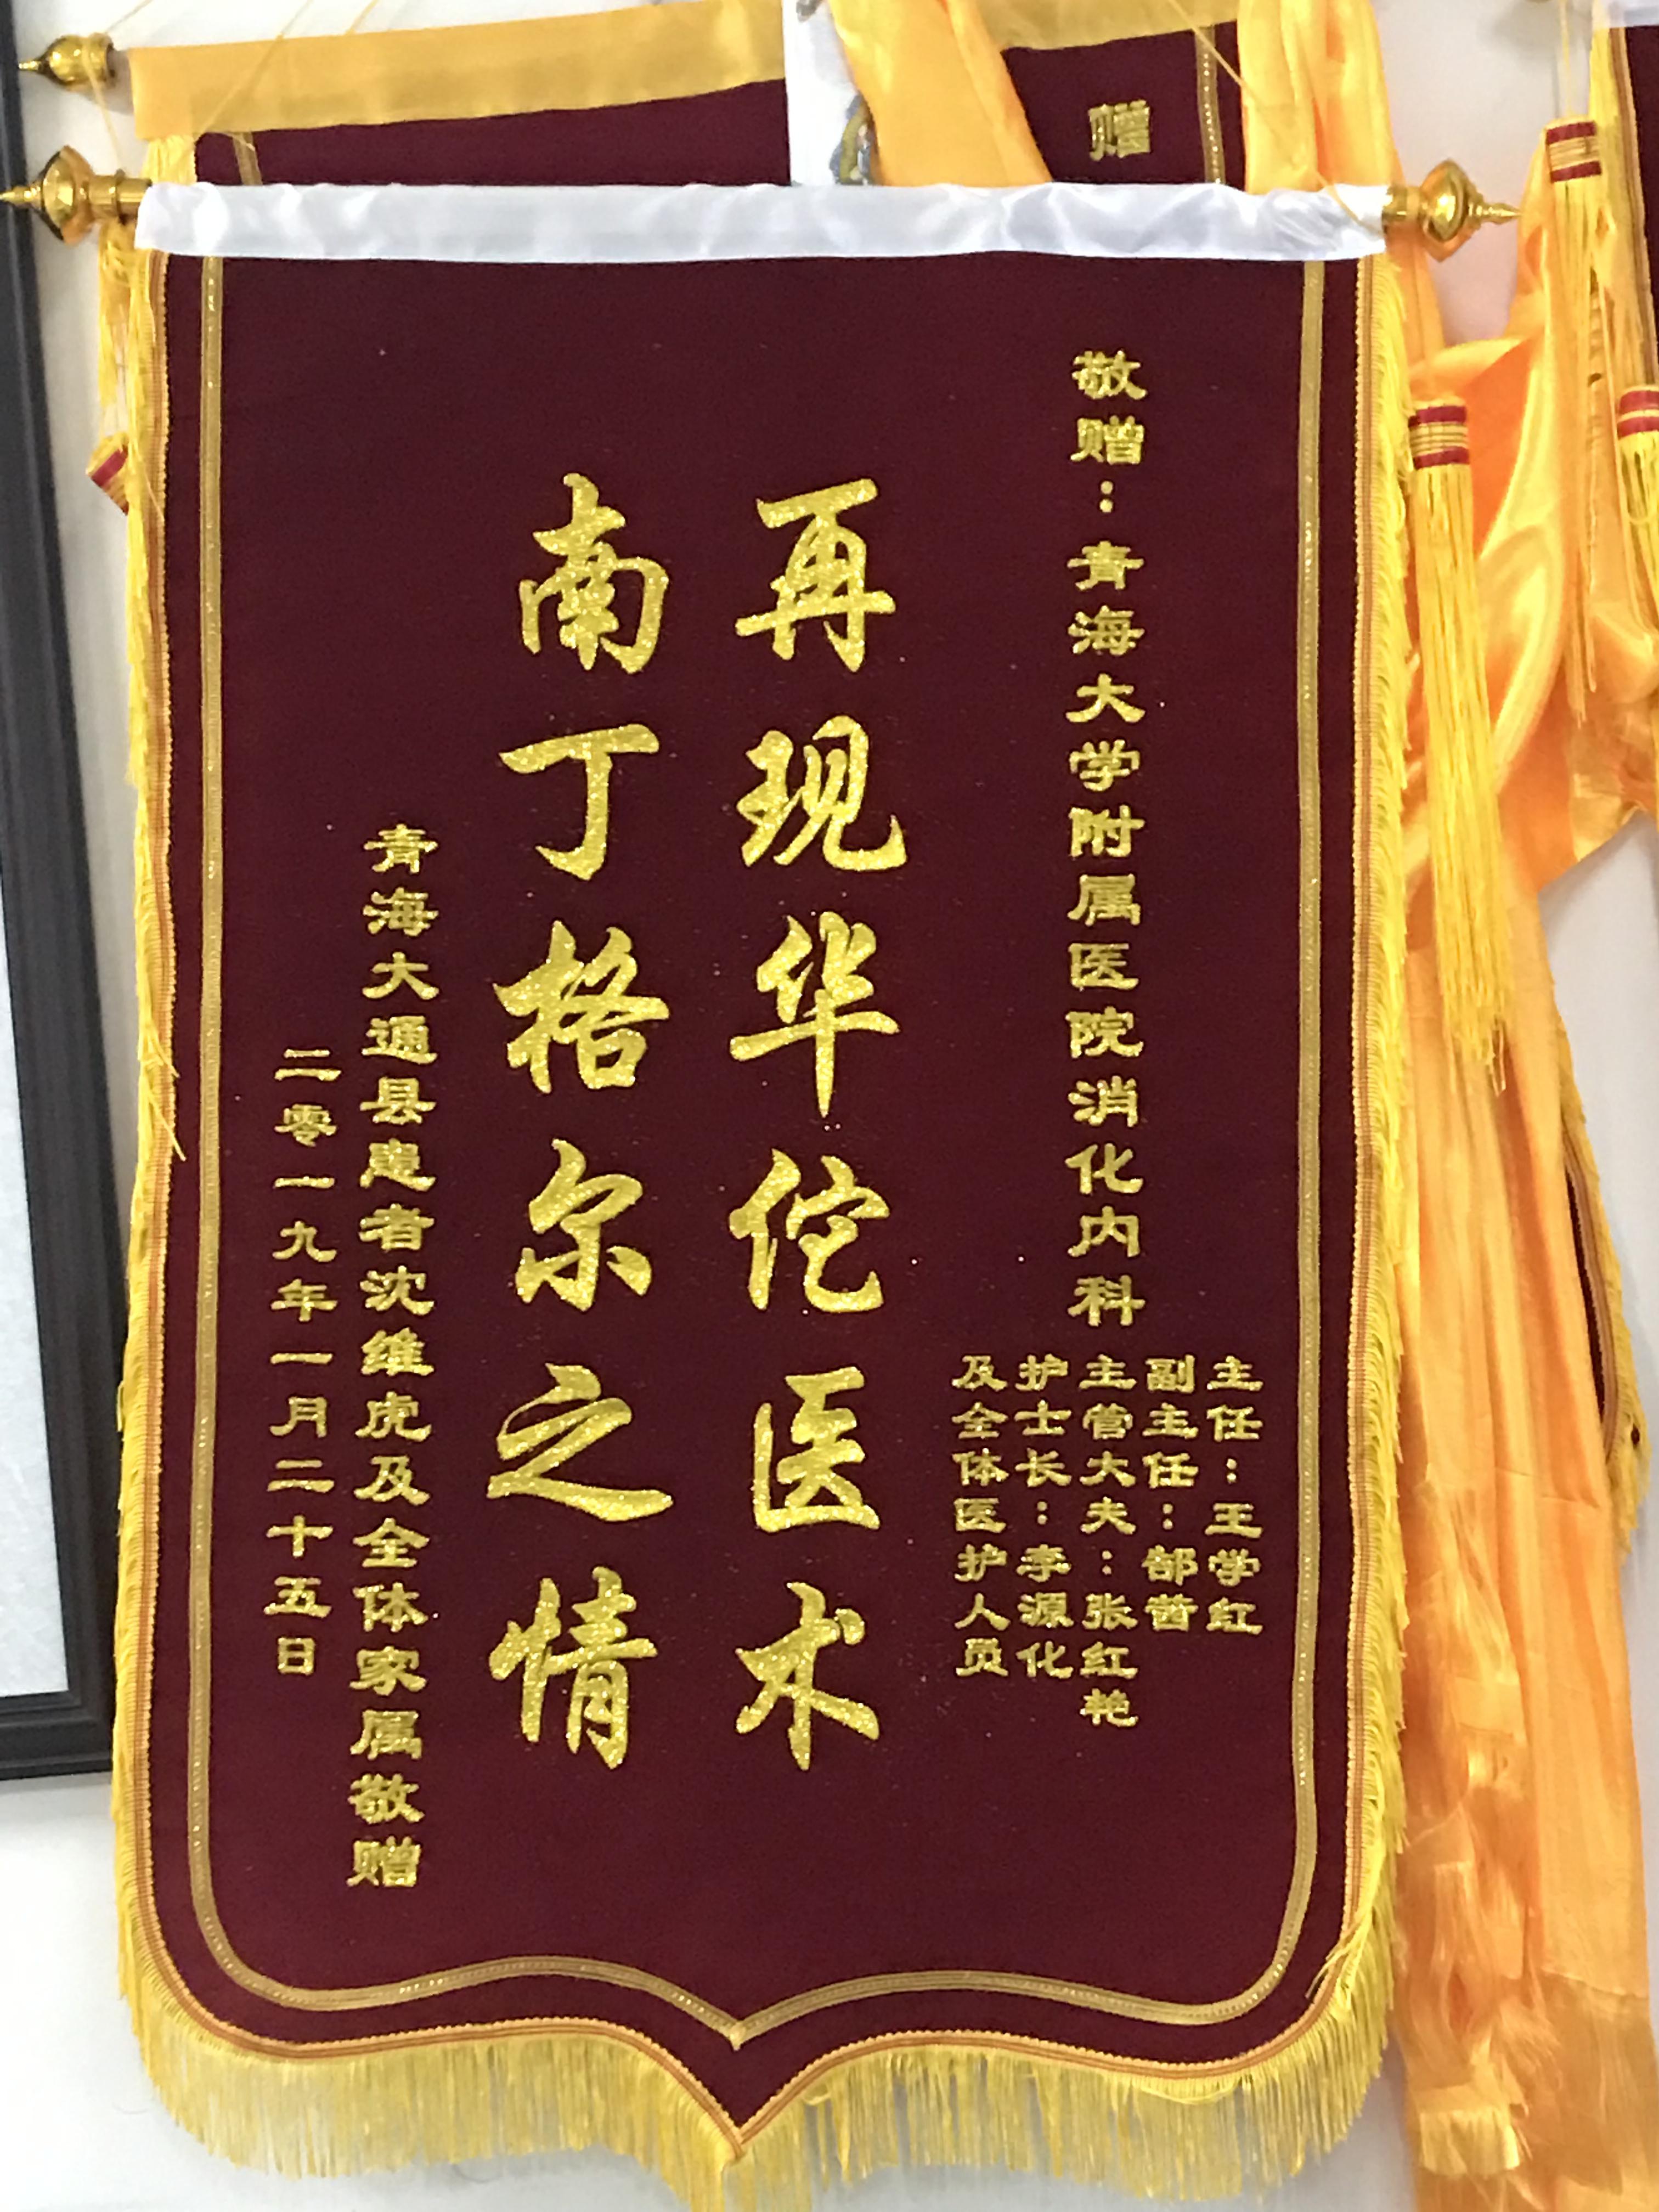 赠
敬赠：青海大学附属医院消化内科
主任：王学红
副主任：郜茜
主管大夫：张红艳
护士长：李源化
及全体医护人员
再现华佗医术
南丁格尔之情
青海大通县患者沈维虎及全体家属敬赠
二零一九年一月二十五日